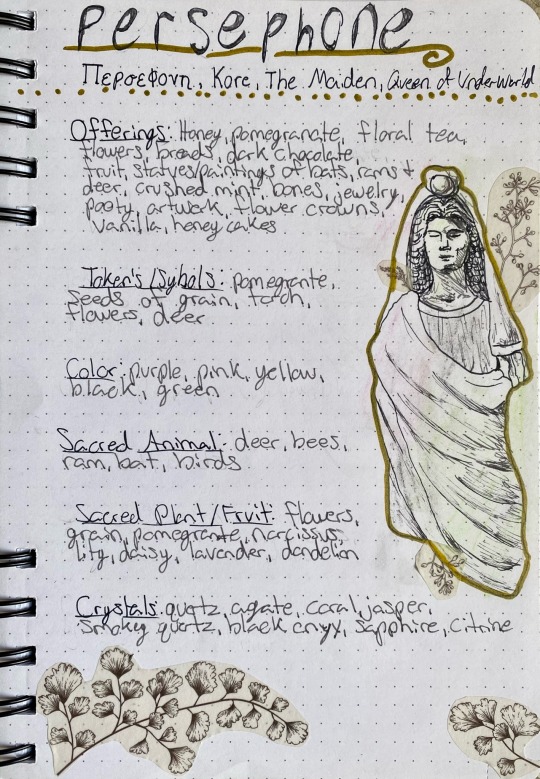 Persephone
Περσεφονη, Kore, The Maiden, Queen of Underworld
Offerings: Honey, pomegranate, floral tea,
flowers, breads, dark chocolate,
fruit, statues/paintings of bats, rams +
deer, crushed mint, bones, jewelry,
poety, artwork, flower crowns,
Vanilla, honey cakes
Token's/Sybols: pomegrante,
Seeds of grain, torch,
flowers, deer
Color: purple, pink, yellow,
black, green
Sacred Animal: deer, bees,
ram, bat, birds
Sacred Plant/Fruit: flowers,
grain, pomegrante, narcissus,
lily, daisy, lavender, dandelion
Crystals: quartz, agate, coral, jasper,
Smoky quartz, black onyx, sapphire, Citrine